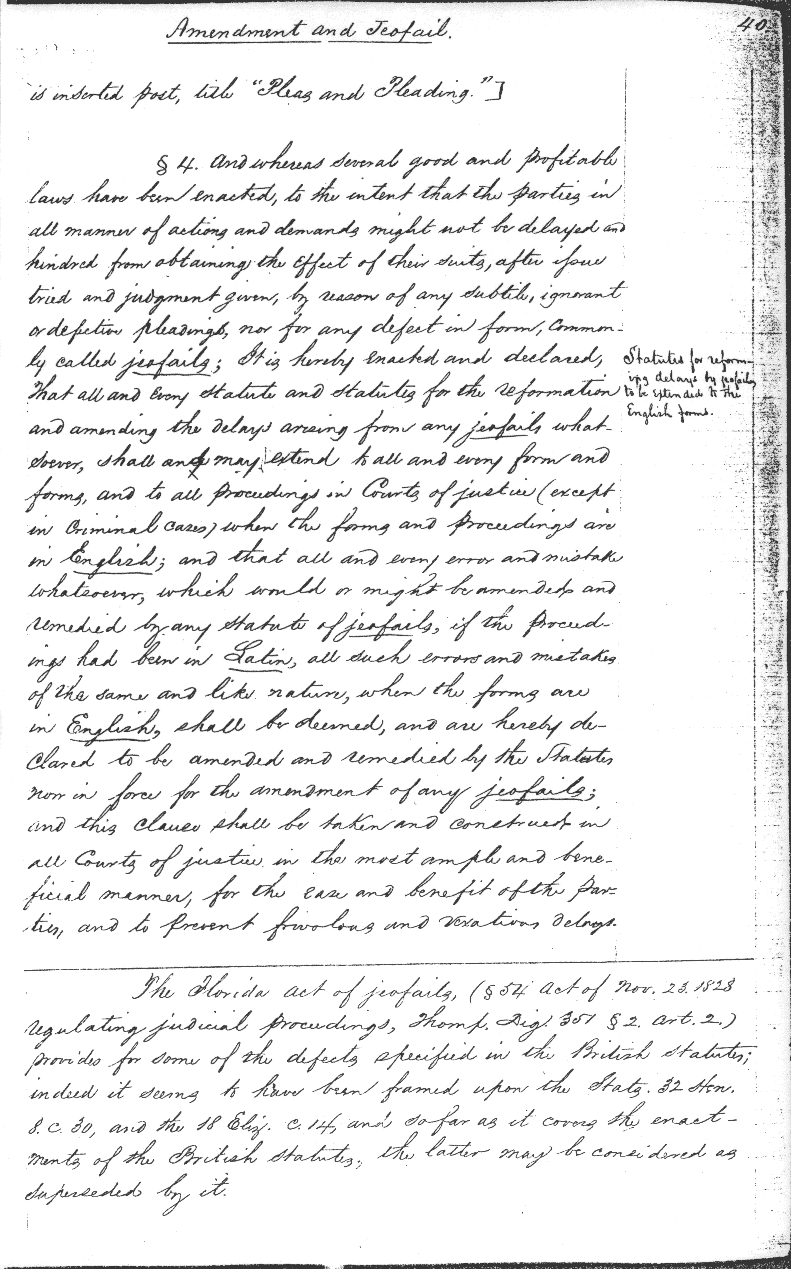 Amendment and Jeofail.
40
is inserted post, title "Pleas and Pleading."]
§ 4. And whereas several good and profitable
laws have been enacted, to the intent that the parties in
all manner of actions and demands might not be delayed and
hindred from obtaining the effect of their suits, after issue
tried and judgment given, by reason of any subtile, ignorant
or defective pleadings, nor for any defect in form, common-
ly called jeofails; It is hereby enacted and declared,
That all and every statute and statutes for the reformation
and amending the delays arising from any jeofails what-
soever, shall and may extend to all and every form and
forms, and to all proceedings in Courts of justice (except
in criminal cases) when the forms and proceedings are
in English; and that all and every error and mistake
whatsoever, which would or might be amended and
remedied by any statute of jeofails, if the proceed-
ings had been in Latin, all such errors and mistakes
of the same and like nature, when the forms are
in English, shall be deemed, and are hereby de-
clared to be amended and remedied by the Statutes
now in force for the amendment of any jeofails;
and this clause shall be taken and construed in
all Courts of justice in the most ample and bene-
ficial manner, for the ease and benefit of the par-
ties, and to prevent frivolous and vexatious delays.
Statutes for reform-
ing delays by jeofails
to be extended to the
English forms.
The Florida act of jeofails, (§ 54 Act of Nov. 23. 1828
regulating judicial proceedings, Thomp. Dig. 351 § 2. Art. 2.)
provides for some of the defects specified in the British statutes;
indeed it seems to have been framed upon the Stats. 32 Hen.
8. c. 30, and the 18 Eliz. c. 14, and so far as it covers the enact-
ments of the British statutes, the latter may be considered as
superseded by it.